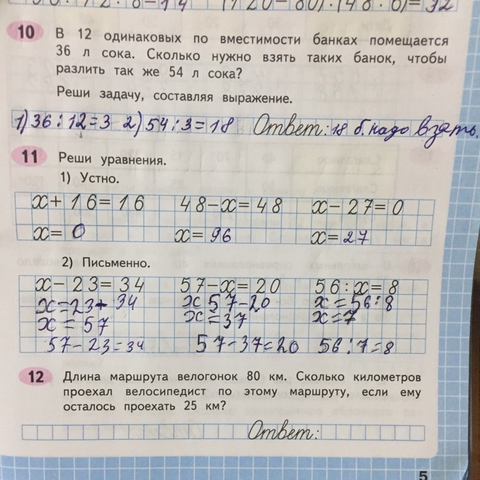 10 В 12 одинаковых по вместимости банках помещается
36 л сока. Сколько нужно взять таких банок, чтобы
разлить так же 54 л сока?
Реши задачу, составляя выражение.
1) 36:12=3 2) 54:3=18 Ответ: 18 б. надо взять.
11 Реши уравнения.
1) Устно.
x+16=16 48-x=48 x-27=0
x=0 x=96 x=27
2) Письменно.
x-23=34 57-x=20 56:x=8
x=23+34 x 57-20 x=56:8
x=57 x=37 x=7
57-23=34 57-37=20 56:7=8
12 Длина маршрута велогонок 80 км. Сколько километров
проехал велосипедист по этому маршруту, если ему
осталось проехать 25 км?
Ответ:
5